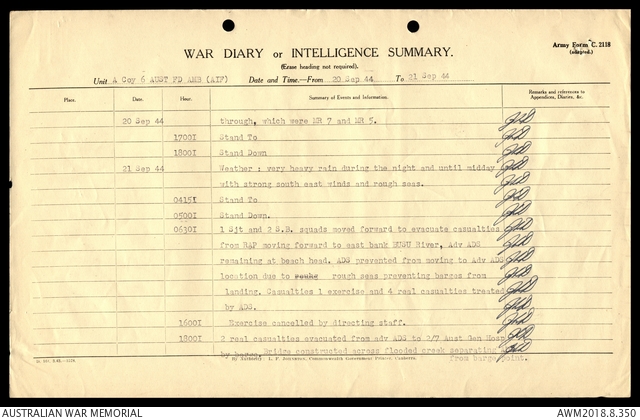 Army Form C. 2118
(adapted.)
WAR DIARY or INTELLIGENCE SUMMARY.
(Erase heading not required).
Unit A Coy 6 AUST FD AMB (AIF) Date and Time.—From 20 Sep 44 To 21 Sep 44
Place. Date. Hour. Summary of Events and Information. Remarks and references to Appendices, Diaries, &c.
20 Sep 44 through, which were MR 7 and MR 5.
1700I Stand To
1800I Stand Down
21 Sep 44 Weather : very heavy rain during the night and until midday
with strong south east winds and rough seas.
0415I Stand To
0500I Stand Down.
0630I 1 Sjt and 2 S.B. squads moved forward to evacuate casualties
from RAP moving forward to east bank BUSU River, Adv ADS
remaining at beach head. ADS prevented from moving to Adv ADS
location due to rough seas preventing barges from
landing. Casualties 1 exercise and 4 real casualties treated
by ADS.
1600I Exercise cancelled by directing staff.
1800I 2 real casualties evacuated from adv ADS to 2/7 Aust Gen Hosp
by barge. Bridge constructed across flooded creek separating
from barge point.
By Authority: L. F. Johnston, Commonwealth Government Printer, Canberra.
AUSTRALIAN WAR MEMORIAL
AWM2018.8.350